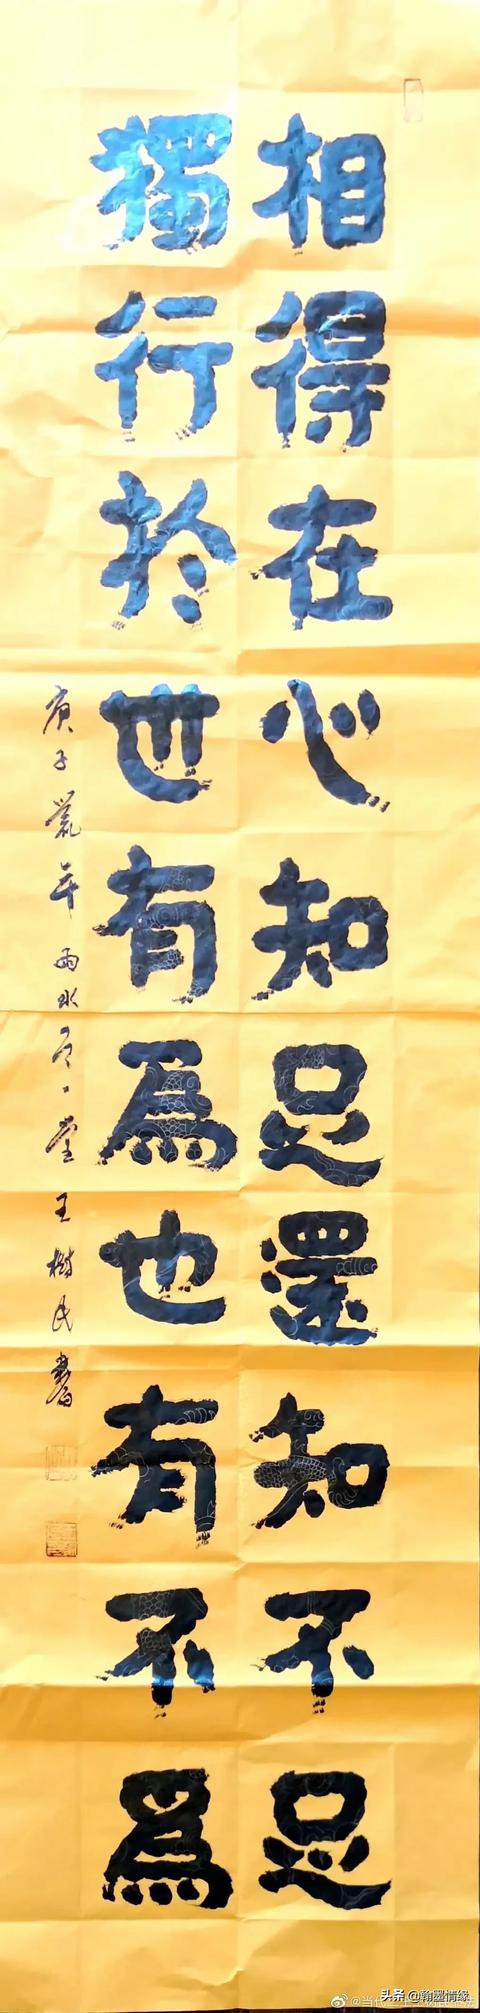 相得在心知足還知不足
獨行於世有為也有不爲
庚子荒年雨水
王樹民書
头条@翰墨情缘
@当代